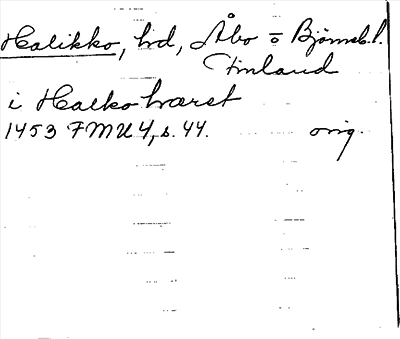 Halikko, hd, Åbo o Björneb. l.
Finland
i Halko hærst
1453 FMU 4, s. 44. orig.